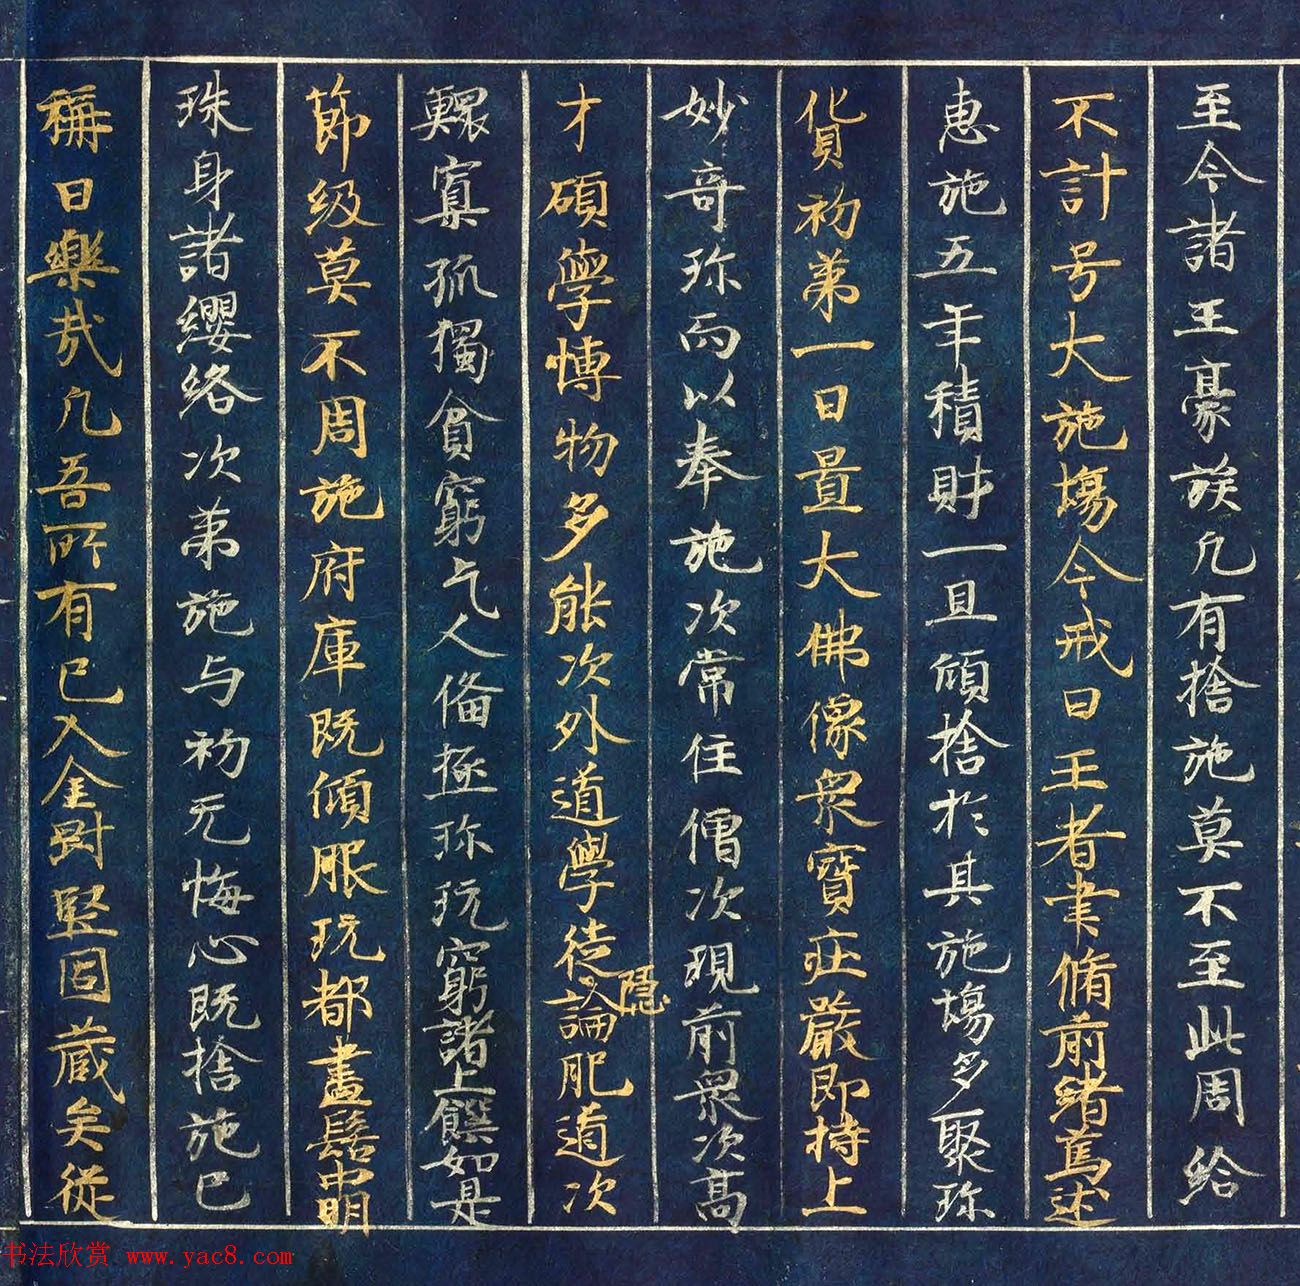 至今諸王豪族凡有捨施莫不至此周給
不計号大施塲今戒日王者聿脩前緒篤述
惠施五年積財一旦傾捨於其施塲多聚珎
貨初第一日置大佛像衆寶莊嚴即持上
妙奇珎而以奉施次常住僧次現前衆次高
才碩學愽物多能次外道學徒隠論肥道次
鰥寡孤獨貧窮乞人俻極珎玩窮諸上饌如是
節級莫不周施府庫既傾服玩都盡髻中明
珠身諸纓絡次第施与初无悔心既捨施已
稱曰樂哉凡吾所有已入金剛堅固蔵矣從
书法欣赏 www.yac8.com